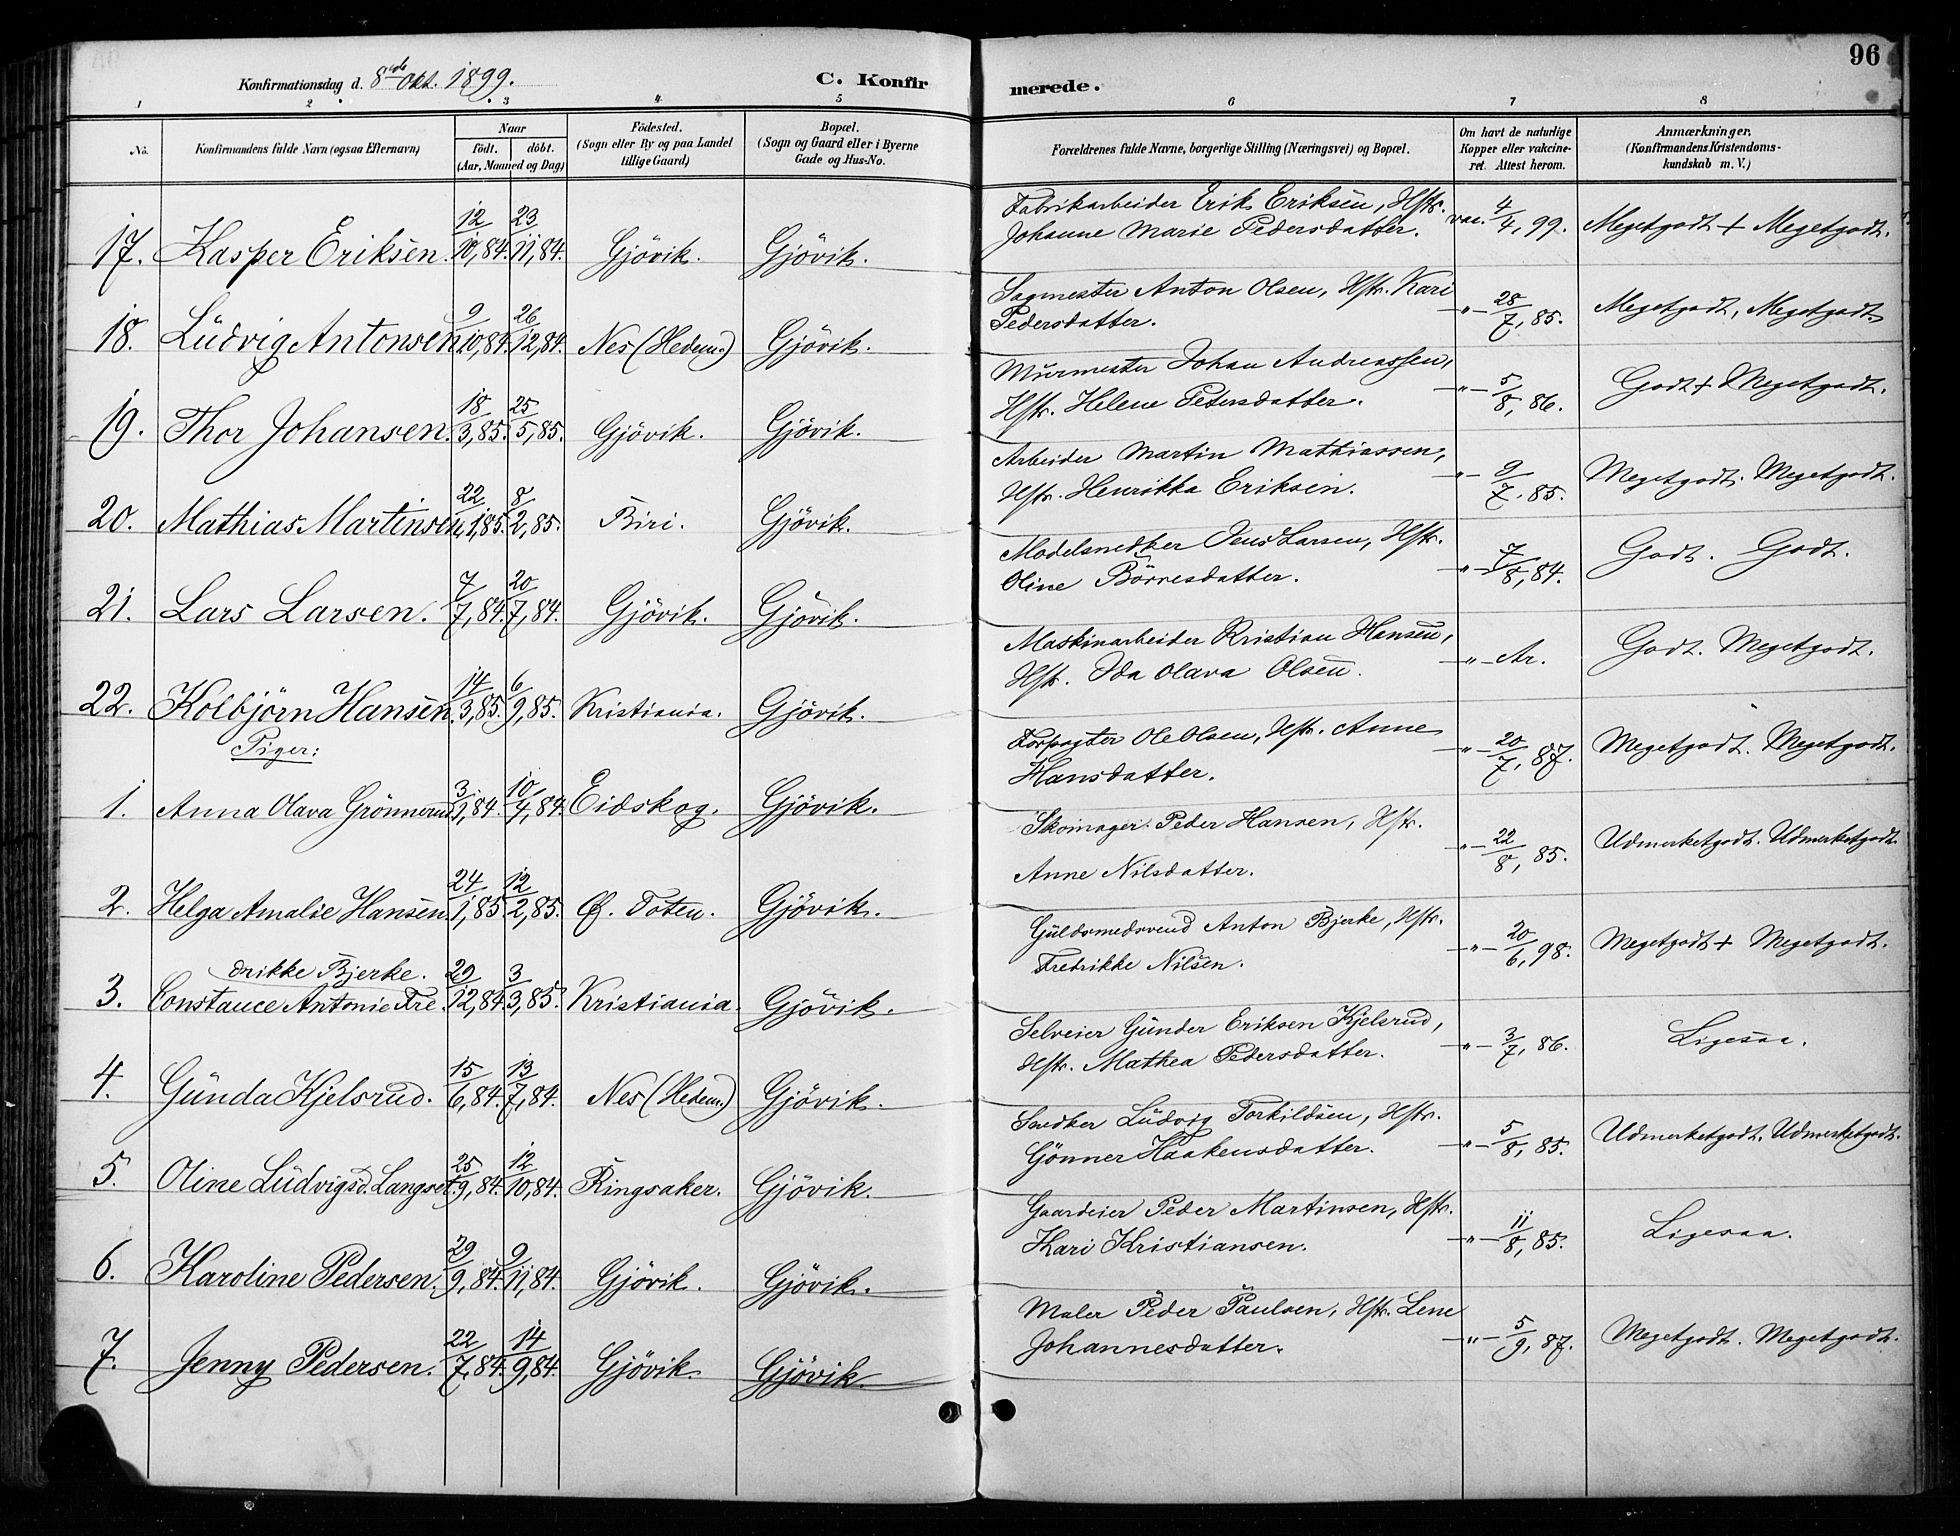 96
Konfirmationsdag d. 8de Okt. 1899. C. Konfirmerede.
1 2 3 4 5 6 7 8
No. Konfirmandens fulde Navn (ogsaa Efternavn) Naar født. døbt. (Aar, Maaned og Dag) Födested. (Sogn eller By og paa Landet tillige Gaard) Bopæl. (Sogn og Gaard eller i Byerne Gade og Hus-No. Forældrenes fulde Navne, borgerlige Stilling (Næringsvei) og Bopæl. Om havt de naturlige Kopper eller vakcineret. Attest herom. Anmærkninger. (Konfirmandens Kristendomskundskab m. V.)
17. Kasper Eriksen. 12/10,84. 23/11,84. Gjövik. Gjövik. Fabrikarbeider Erik Eriksen, Hstr. Johanne Marie Pedersdatter. vac. 4/4, 99. Megetgodt + Megetgodt.
18. Ludvig Antonsen 9/10,84. 26/12,84. Nes (Hedem.) Gjövik. Sagmester Anton Olsen, Hstr. Kari Pedersdatter. -"- 28/7, 85. Megetgodt, Megetgodt.
19. Thor Johansen. 18/3,85. 25/5,85. Gjövik. Gjövik. Murmester Johan Andreassen, Hstr. Helene Petersdatter. -"- 5/8, 86. Godt + Megetgodt.
20. Mathias Martinsen 22/1,85. 8/2,85. Biri. Gjövik. Arbeider Martin Mathiassen, Hstr. Henrikka Eriksen. -"- 9/7, 85. Megetgodt. Megetgodt.
21. Lars Larsen. 7/7,84. 20/7,84. Gjövik. Gjövik. Modelsnedker Jens Larsen, Hstr. Oline Börresdatter. -"- 7/8, 84. Godt. Godt.
22. Kolbjörn Hansen. 14/3,85. 6/9,85. Kristiania. Gjövik. Maskinarbeider Kristian Hansen, Hstr. Ida Olava Olsen. -"- Ar. Godt. Megetgodt.
Piger:
1. Anna Olava Grönnerud 3/1,84. 10/4,84. Eidskog. Gjövik. Forpagter Ole Olsen, Hstr. Anne Hansdatter. -"- 20/7, 87. Megetgodt. Megetgodt.
2. Helga Amalie Hansen 24/1,85. 12/2,85. Ø. Toten. Gjövik. Skomager Peder Hansen, Hstr. Anne Nilsdatter. -"- 22/8, 85. Udmerketgodt. Udmerketgodt.
3. Constance Antonie Fredrikke Bjerke. 29/12,84. 3/3,85. Kristiania. Gjövik. Guldsmedsvend Anton Bjerke, Hstr. Fredrikke Nilsen. -"- 20/6, 98. Megetgodt + Megetgodt.
4. Gunda Kjelsrud. 15/6,84. 13/7,84. Nes (Hedem.) Gjövik. Selveier Gunder Eriksen Kjelsrud, Hstr. Mathea Pedersdatter. -"- 3/7, 86. Ligesaa.
5. Oline Ludvigsd. Langset. 25/9,84. 12/10,84. Ringsaker. Gjövik. Snedker Ludvig Torkildsen, Hstr. Gönner Haakensdatter. -"- 5/8, 85. Udmerketgodt. Udmerketgodt.
6. Karoline Pedersen. 29/9,84. 9/11,84. Gjövik. Gjövik. Gaardeier Peder Martinsen, Hstr. Kari Kristiansen. -"- 11/8, 85. Ligesaa.
7. Jenny Pedersen. 22/7,84. 14/9,84. Gjövik. Gjövik. Maler Peder Paulsen, Hstr. Lene Johannesdatter. -"- 5/9, 87. Megetgodt. Megetgodt.